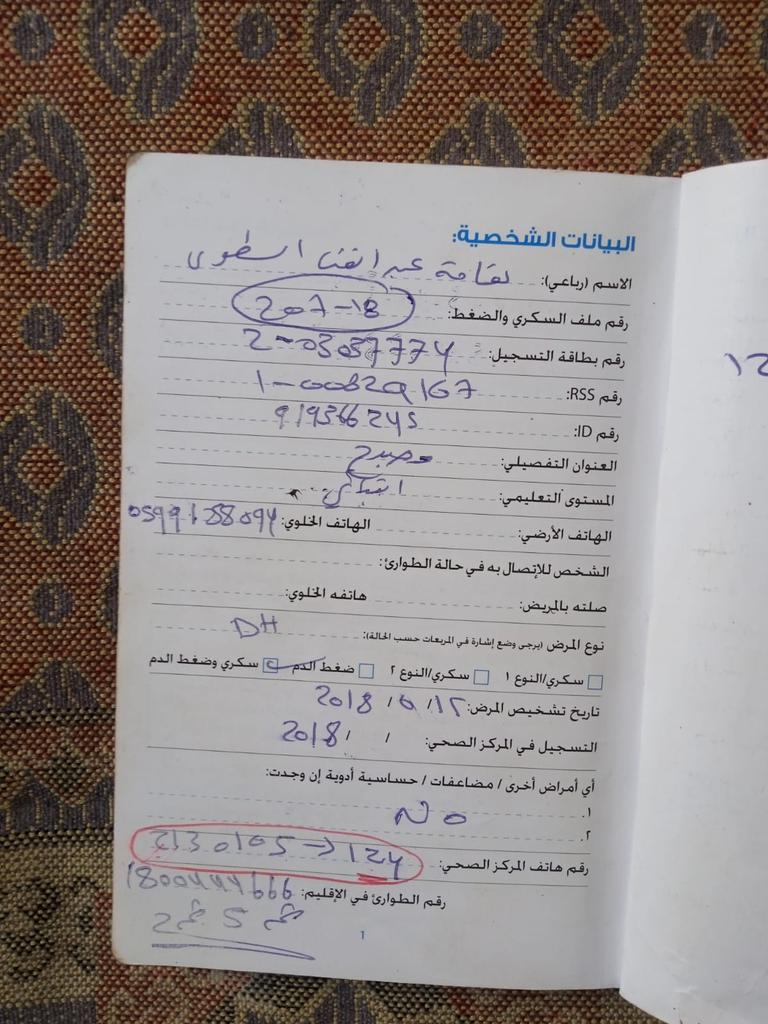 البيانات الشخصية:
الاسم (رباعي): عبد السطوى
رقم ملف السكري والضغط: 207-18
رقم بطاقة التسجيل: 2-03037774
رقم RSS: 1-00829167
رقم ID: 919366245
العنوان التفصيلي:
المستوى التعليمي: ابتدائي
الهاتف الأرضي: الهاتف الخلوي:
الشخص للإتصال به في حالة الطوارئ:
صلته بالمريض: هاتفه الخلوي:
نوع المرض (يرجى وضع إشارة في المربعات حسب الحالة): DH
سكري/النوع ١ سكري/النوع ٢ ضغط الدم سكري وضغط الدم
تاريخ تشخيص المرض: ١٢/ ٥ / 2018
التسجيل في المركز الصحي: / / 2018
أي أمراض أخرى / مضاعفات / حساسية أدوية إن وجدت:
١. No
٢.
رقم هاتف المركز الصحي: 2130105 → 124
رقم الطوارئ في الإقليم: 1800444666
1
12